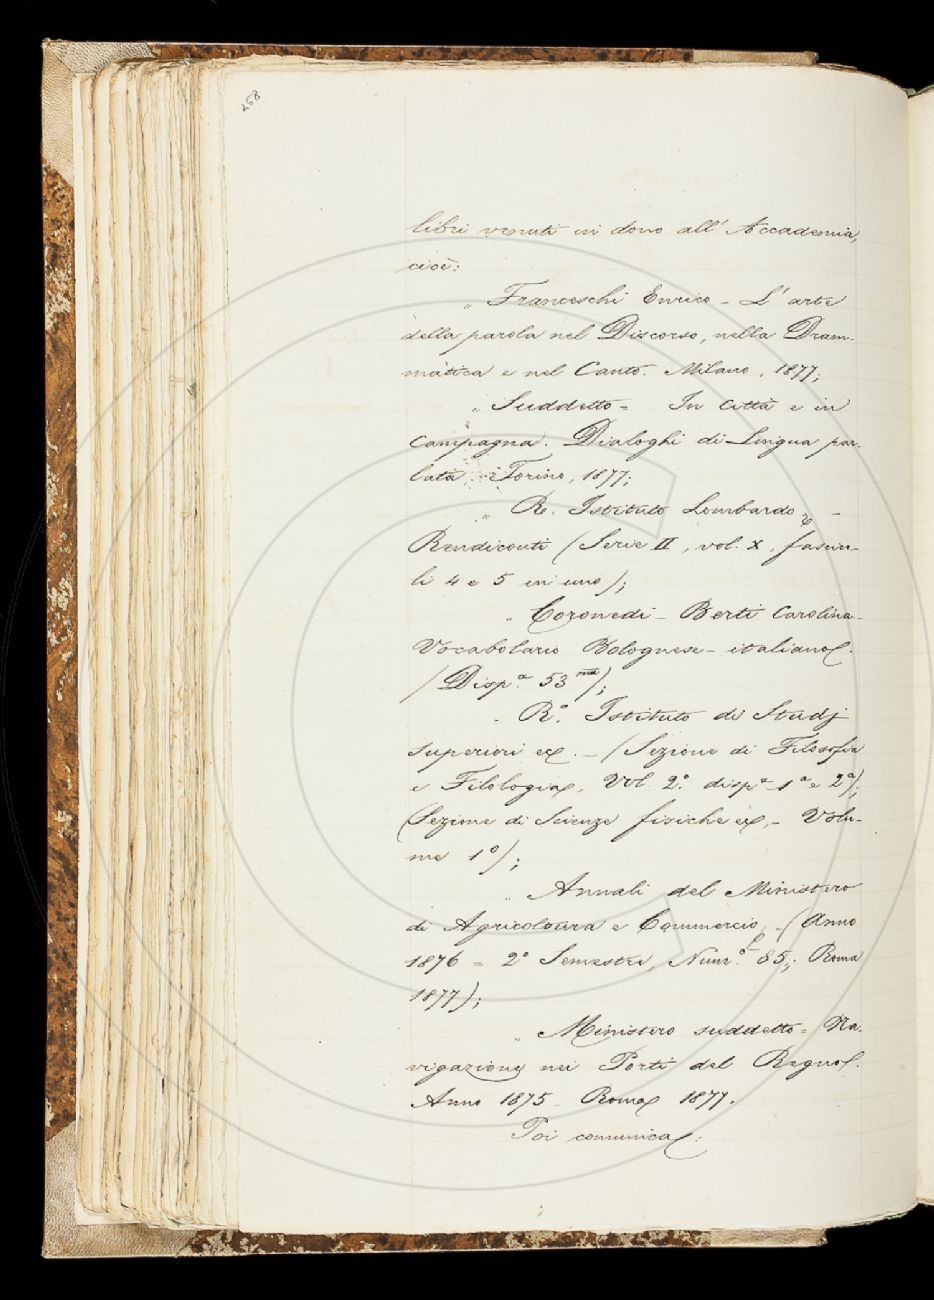 268
libri venuti in dono all' Accademia,
cioè:
" Franceschi Enrico - L' arte
della parola nel Discorso, nella Dram-
matica e nel Canto. Milano, 1877;
" Suddetto = In Città e in
Campagna. Dialoghi di Lingua par-
lata, Torino, 1877;
" R. Istituto Lombardo, -
Rendiconti (Serie II, vol. X, fascico-
li 4 e 5 in uno);
" Coronedi - Berti Carolina -
Vocabolario Bolognese - italiano.
(Disp.ª 53ma);
" R.º Istituto di Studj
superiori - (Sezione di Filosofia
e Filologia, Vol. 2.º disp.ª 1ª e 2ª);
(Sezione di Scienze fisiche - Volu-
me 1º);
" Annali del Ministero
di Agricoltura e Commercio, - (Anno
1876 = 2º Semestre, Num.º 85; Roma
1877);
" Ministero suddetto = Na-
vigazione nei Porti del Regno.
Anno 1875 - Roma 1877.
Poi comunica: